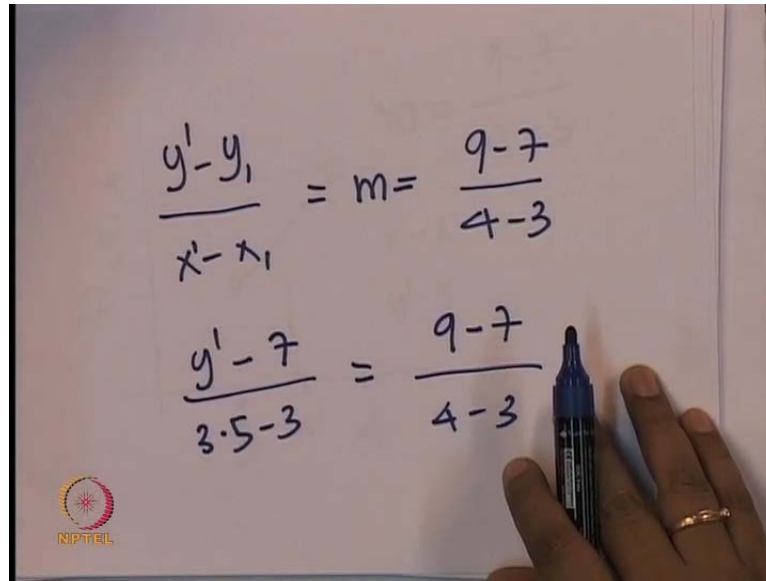 y' - y₁ / x' - x₁ = m = 9 - 7 / 4 - 3
y' - 7 / 3·5 - 3 = 9 - 7 / 4 - 3
NPTEL